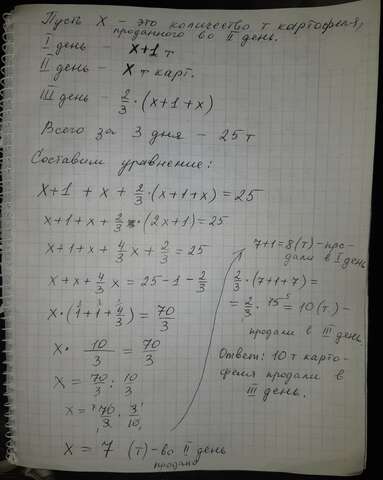 Пусть X – это количество т картофеля,
проданного во II день.
I день – x+1 т
II день – x т карт.
III день – 2/3 · (x+1+x)
Всего за 3 дня – 25 т
Составим уравнение:
x+1 + x + 2/3 · (x+1+x) = 25
x+1+x + 2/3 · (2x+1) = 25
x+1+x + 4/3 x + 2/3 = 25
x+x+ 4/3 x = 25-1- 2/3
x · (1+1+ 4/3) = 70/3
x · 10/3 = 70/3
x = 70/3 : 10/3
x = 70/3 · 3/10
x = 7 (т) – во II день
продано
7+1=8 (т) – про-
дали в I день
2/3 · (7+1+7) =
= 2/3 · 15 = 10 (т) –
продали в III день
Ответ: 10 т карто-
феля продали в
III день.